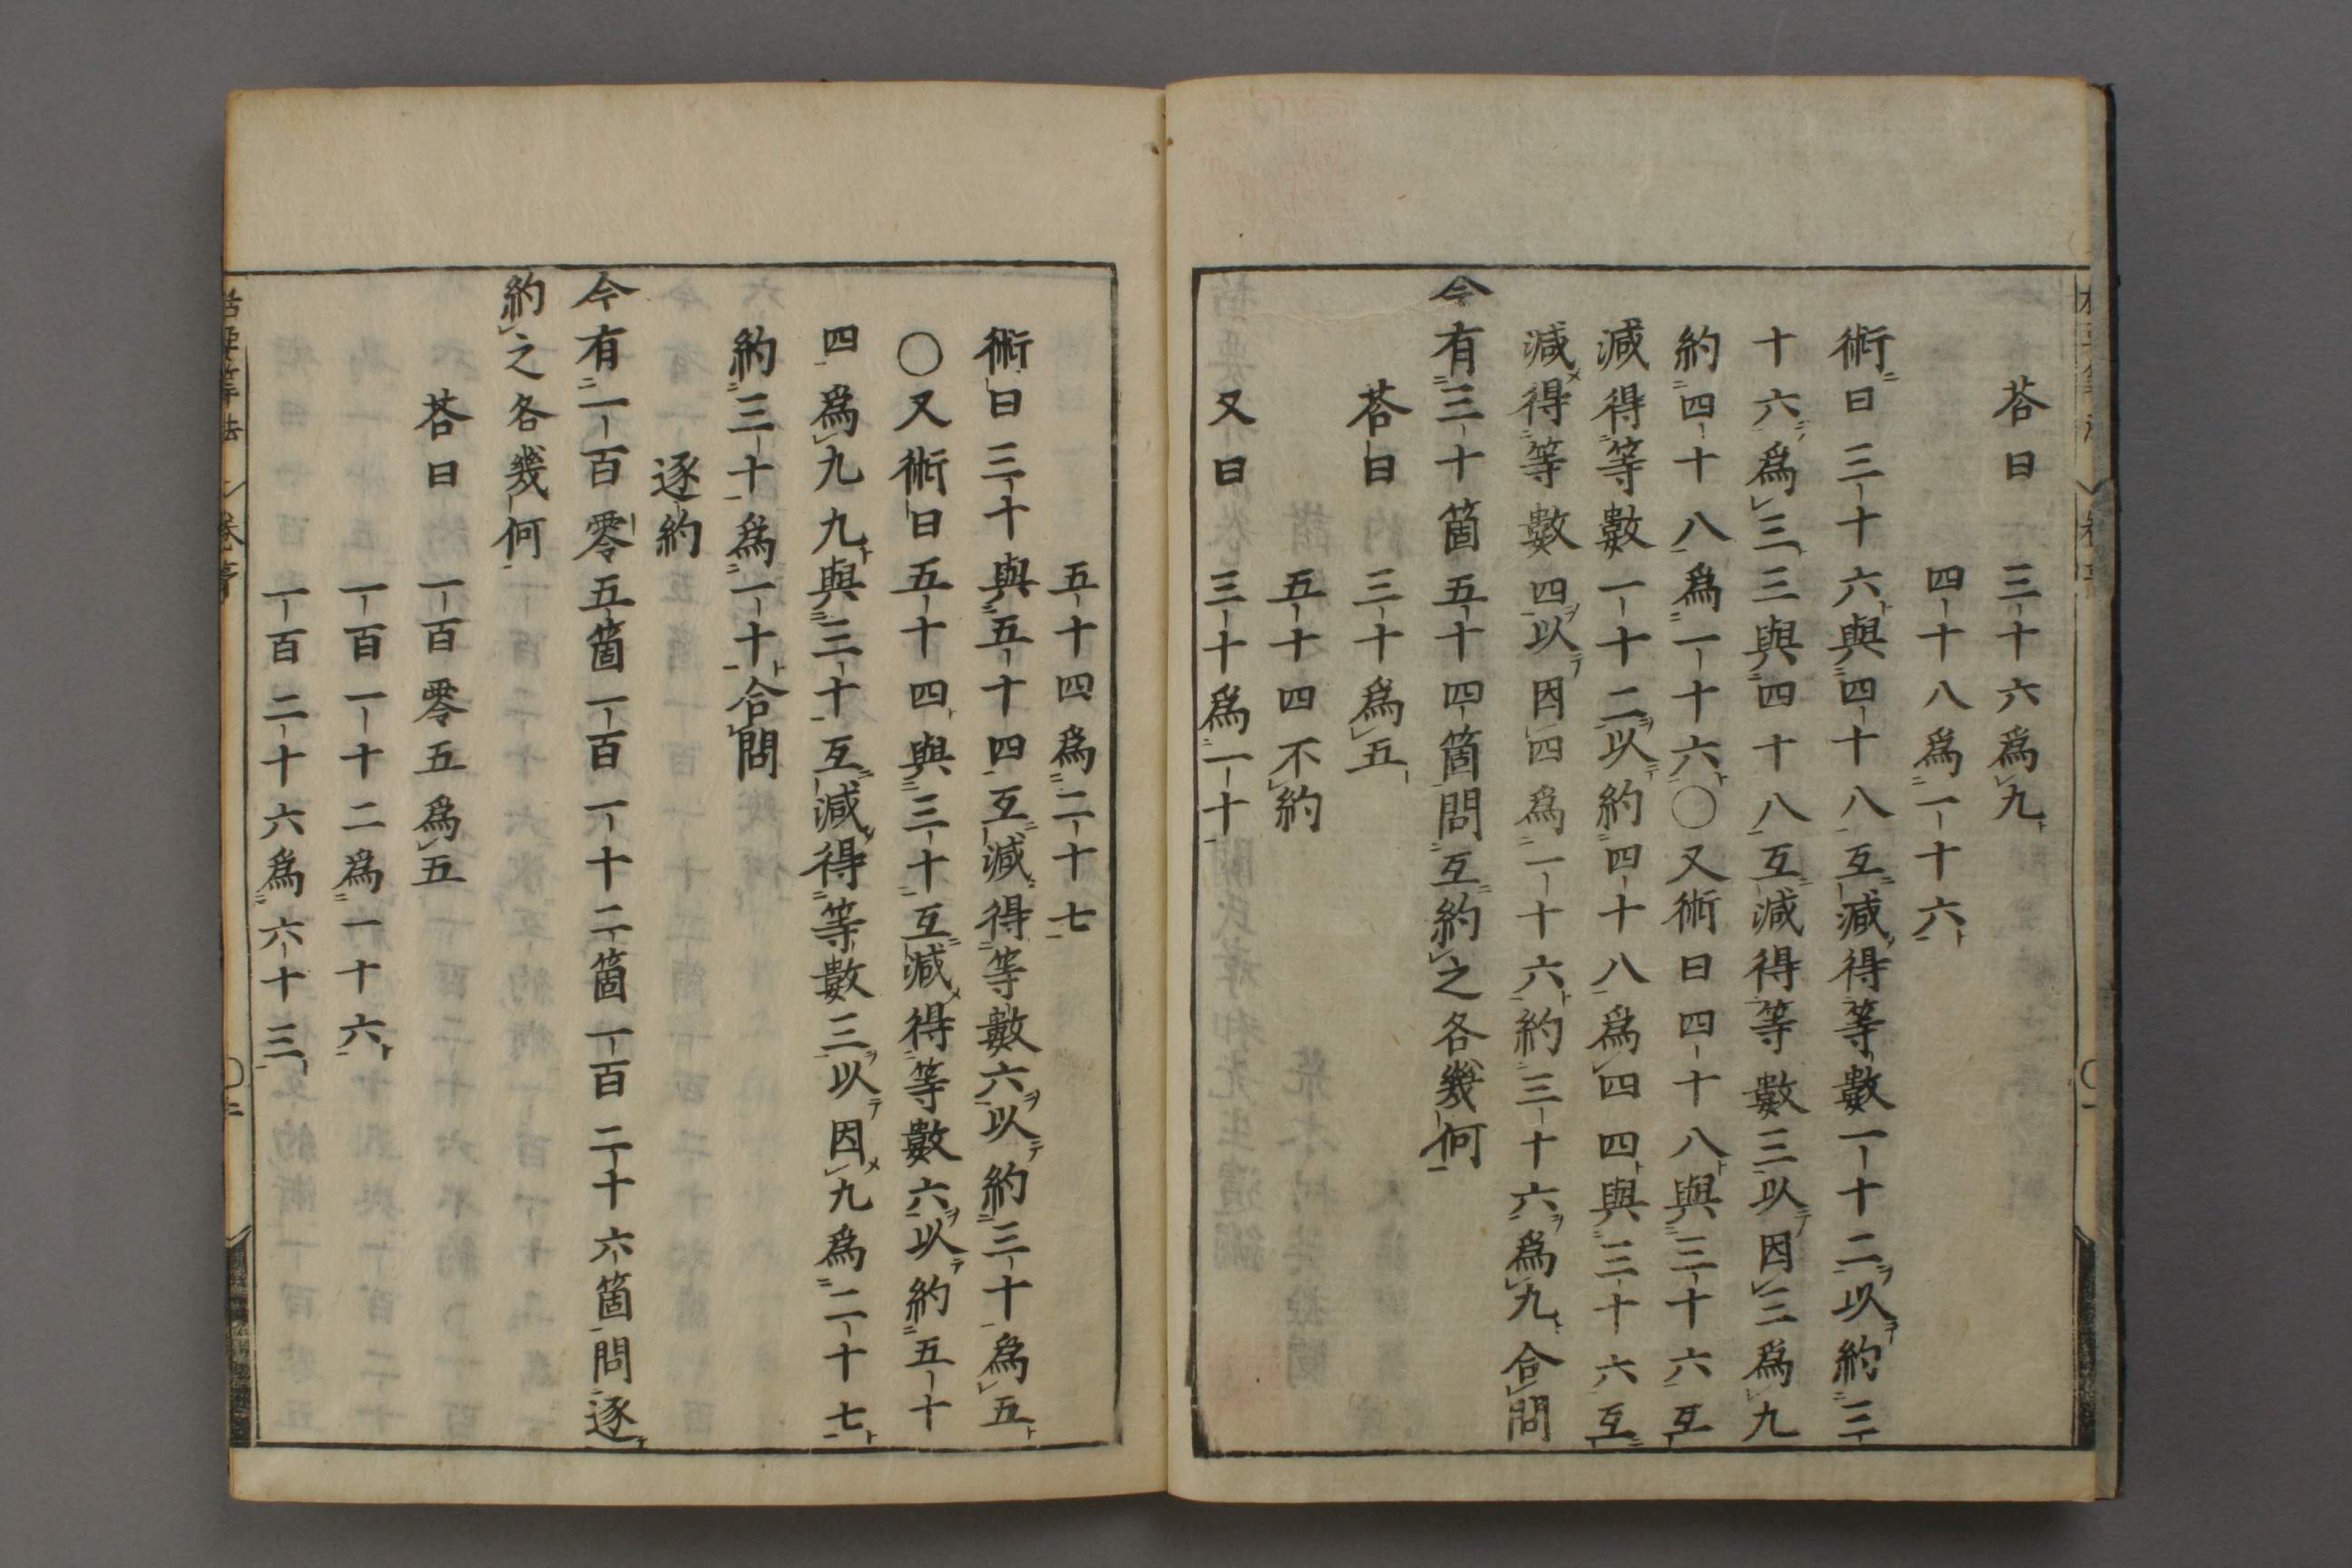 荅曰三十六爲九
四十八爲一十六
術曰三十六與四十八互減得等數一十二以約三
十六爲三三與四十八互減得等數三以因三爲九
約四十八爲一十六〇又術曰四十八與三十六互
減得等數一十二以約四十八爲四四與三十六互
減得等數四以因四爲一十六約三十六爲九合問
今有三十箇五十四箇問互約之各幾何
荅曰三十爲五
五十四不約
又曰三十爲一十
五十四爲二十七
術曰三十與五十四互減得等數六以約三十爲五
〇又術曰五十四與三十互減得等數六以約五十
四爲九九與三十互減得等數三以因九爲二十七
約三十爲一十合問
逐約
今有一百零五箇一百一十二箇一百二十六箇問逐
約之各幾何
荅曰一百零五爲五
一百一十二爲一十六
一百二十六爲六十三